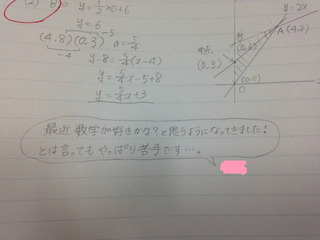 (2) B y=½×0+6
y=6
(4,8)(0,3) a=5/4
-4 -5
y-8=5/4(x-4)
y=5/4x-5+8
y=5/4x+3
y=2x
A(4,8)
B
(0,6)
中点
(0,3)
(0,0)
O
最近 数学が好きかな?と思うようになってきました!
とは言ってもやっぱり苦手です…。